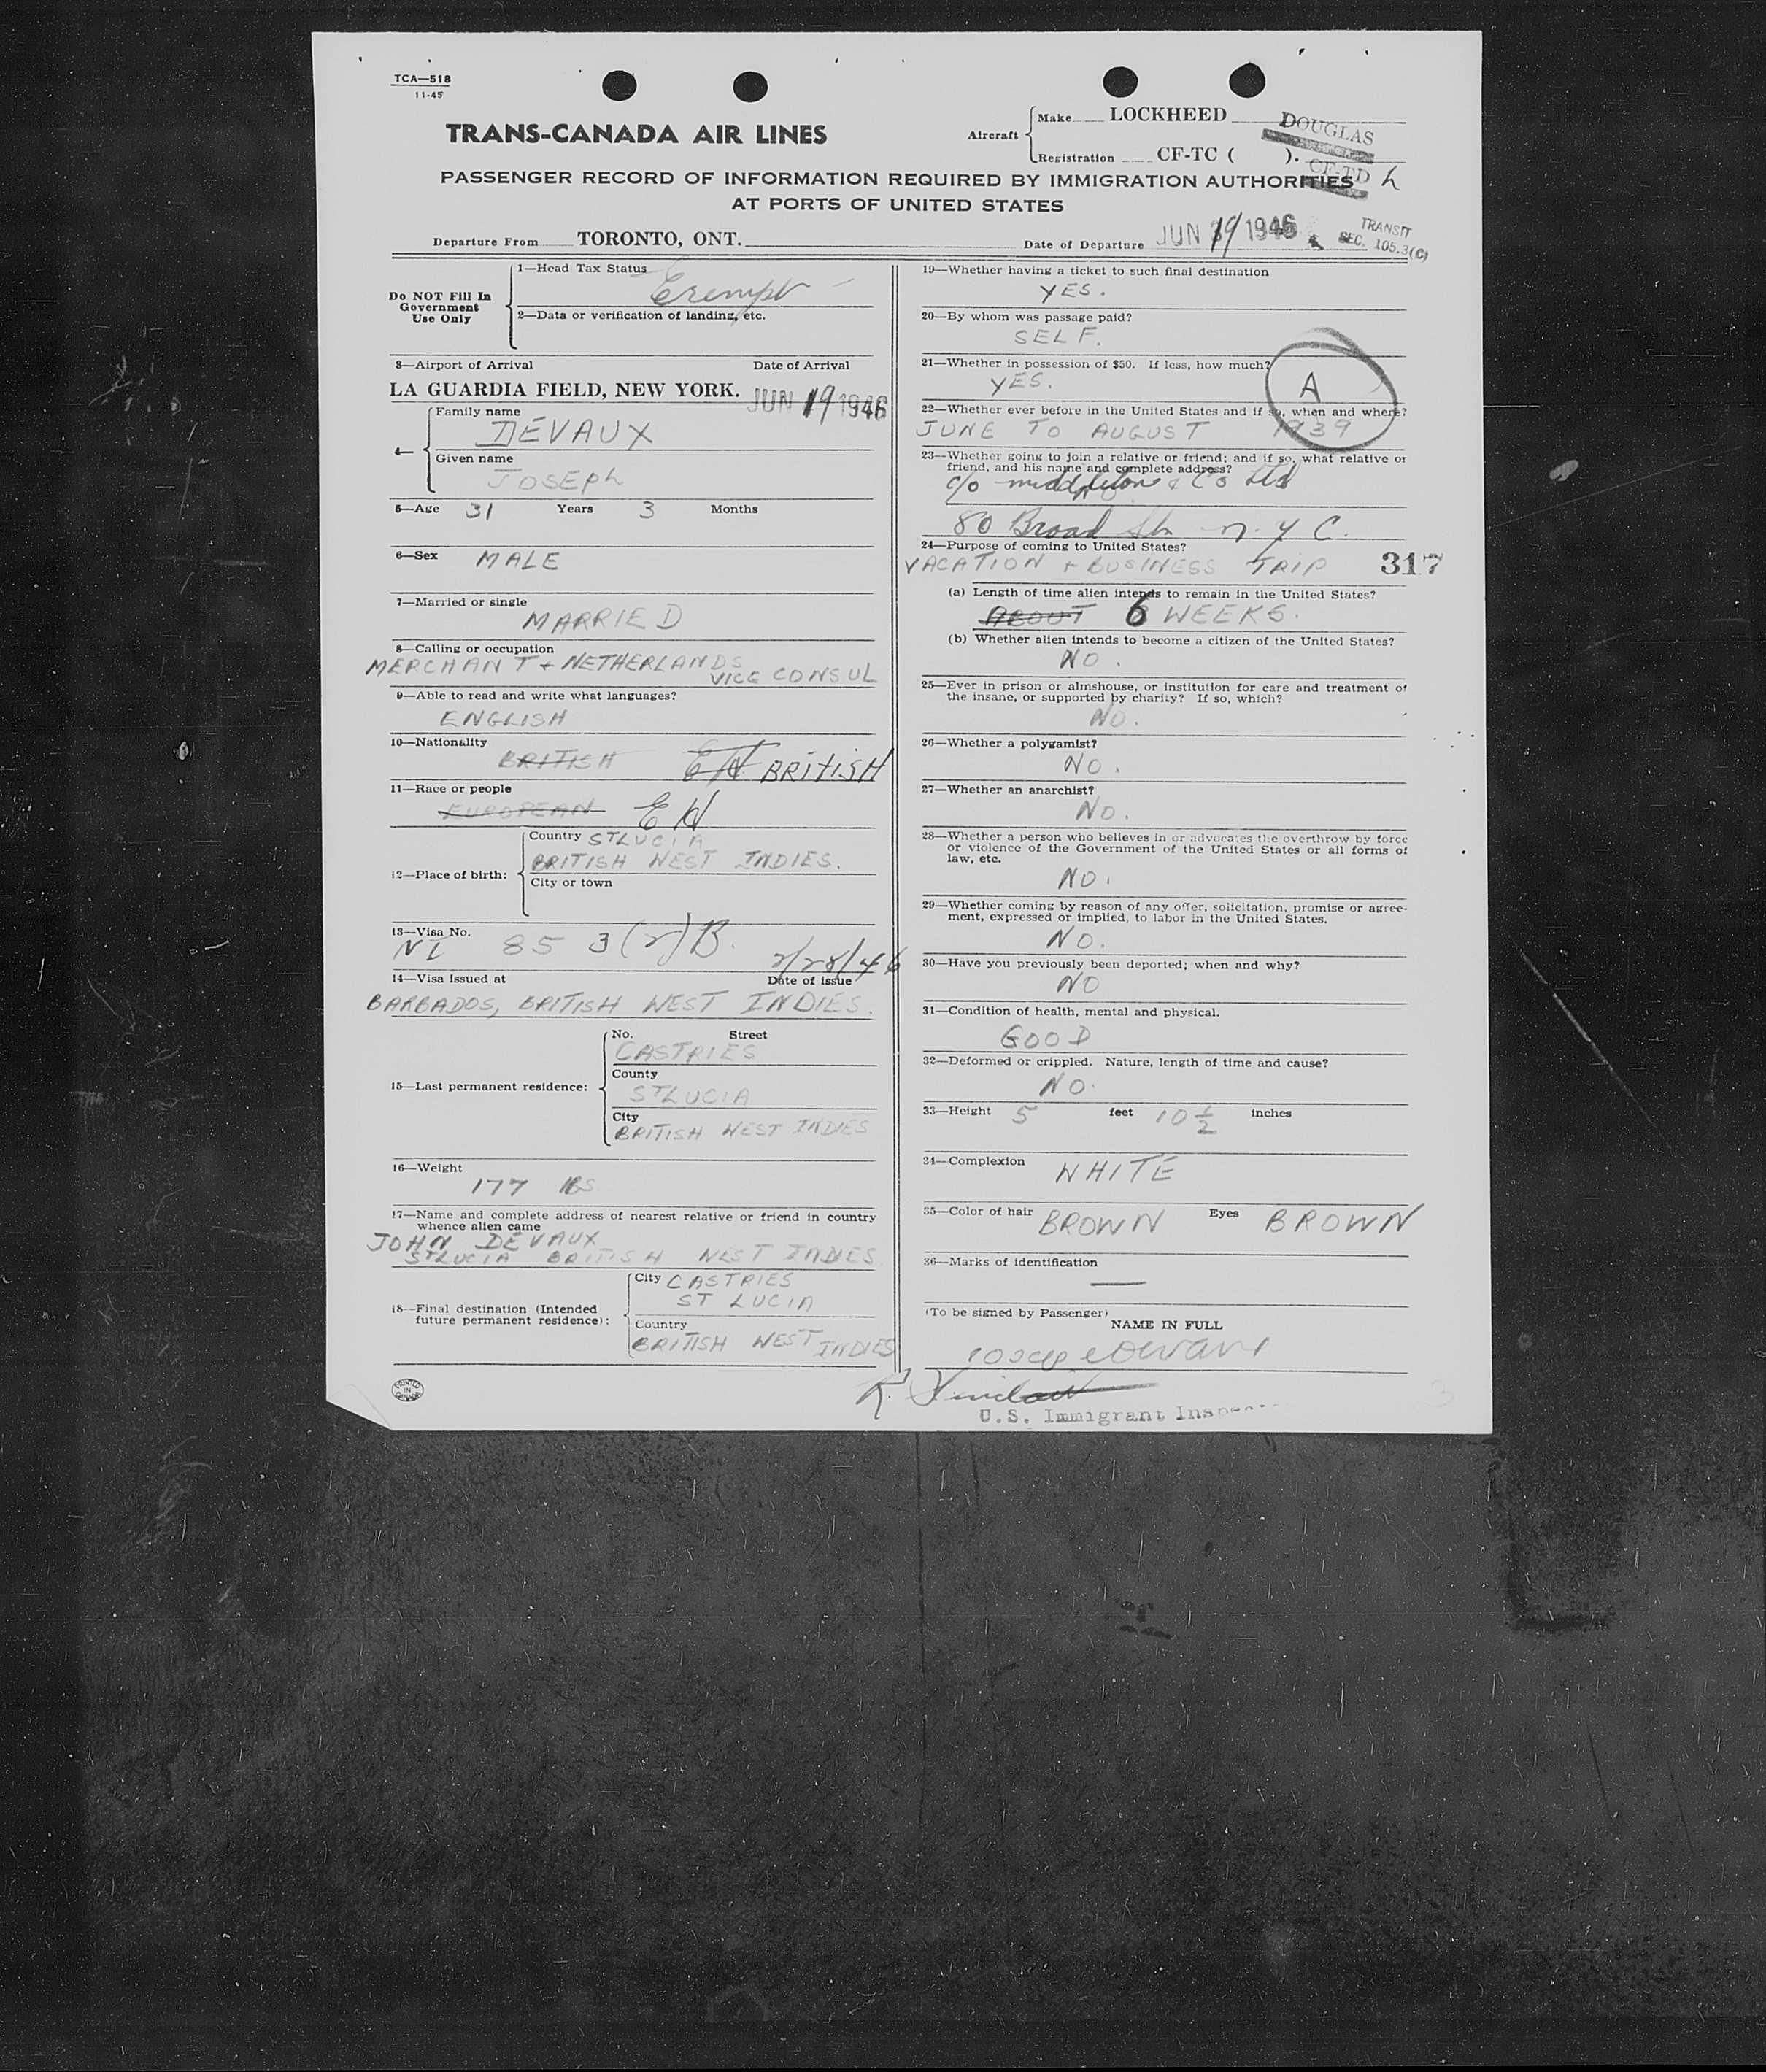 TCA—518
11-45
TRANS-CANADA AIR LINES
Aircraft
Make LOCKHEED
DOUGLAS
Registration CF-TC ( ).
CF-TD
PASSENGER RECORD OF INFORMATION REQUIRED BY IMMIGRATION AUTHORITIES
AT PORTS OF UNITED STATES
Departure From TORONTO, ONT.
Date of Departure JUN 19 1946
TRANSIT
SEC. 105.3(C)
Do NOT Fill In
Government
Use Only
1—Head Tax Status
Exempt
2—Data or verification of landing, etc.
3—Airport of Arrival Date of Arrival
LA GUARDIA FIELD, NEW YORK. JUN 19 1946
4—
Family name
DEVAUX
Given name
JOSEPH
5—Age 31 Years 3 Months
6—Sex MALE
7—Married or single
MARRIED
8—Calling or occupation
MERCHANT + NETHERLANDS
VICE CONSUL
9—Able to read and write what languages?
ENGLISH
10—Nationality
BRITISH EN BRITISH
11—Race or people
EUROPEAN EN
12—Place of birth:
Country ST LUCIA
BRITISH WEST INDIES.
City or town
13—Visa No.
NI 85 3(2)B.
2/28/46
14—Visa issued at Date of issue
BARBADOS, BRITISH WEST INDIES.
15—Last permanent residence:
No. Street
CASTRIES
County
ST LUCIA
City
BRITISH WEST INDIES
16—Weight
177 lbs
17—Name and complete address of nearest relative or friend in country
whence alien came
JOHN DEVAUX
ST LUCIA BRITISH WEST INDIES
18—Final destination (Intended
future permanent residence):
City CASTRIES
ST LUCIA
Country
BRITISH WEST INDIES
PRINTED
IN
CANADA
19—Whether having a ticket to such final destination
YES.
20—By whom was passage paid?
SELF.
21—Whether in possession of $50. If less, how much?
YES.
A
22—Whether ever before in the United States and if so, when and where?
JUNE TO AUGUST 1939
23—Whether going to join a relative or friend; and if so, what relative or
friend, and his name and complete address?
c/o Middleton & Co Ltd
80 Broad St. N.Y.C.
24—Purpose of coming to United States?
VACATION + BUSINESS TRIP 317
(a) Length of time alien intends to remain in the United States?
ABOUT 6 WEEKS.
(b) Whether alien intends to become a citizen of the United States?
NO.
25—Ever in prison or almshouse, or institution for care and treatment of
the insane, or supported by charity? If so, which?
NO.
26—Whether a polygamist?
NO.
27—Whether an anarchist?
NO.
28—Whether a person who believes in or advocates the overthrow by force
or violence of the Government of the United States or all forms of
law, etc.
NO.
29—Whether coming by reason of any offer, solicitation, promise or agree-
ment, expressed or implied, to labor in the United States.
NO.
30—Have you previously been deported; when and why?
NO
31—Condition of health, mental and physical.
GOOD
32—Deformed or crippled. Nature, length of time and cause?
NO.
33—Height 5 feet 10 1/2 inches
34—Complexion WHITE
35—Color of hair BROWN Eyes BROWN
36—Marks of identification
—
(To be signed by Passenger)
NAME IN FULL
Joseph Devaux
R. Sinclair
U.S. Immigrant Inspector